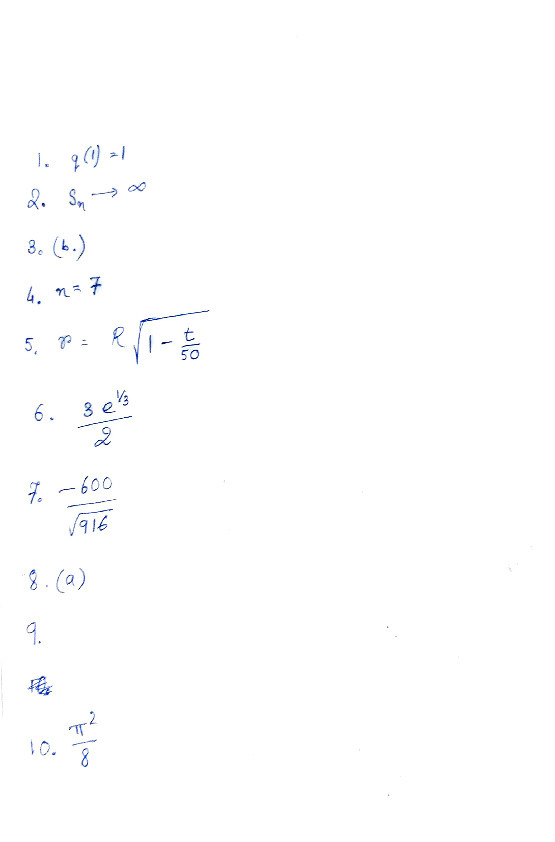 1. q(1) = 1
2. Sn → ∞
3. (b.)
4. n = 7
5. r = R √(1 - t/50)
6. 3 e^(1/3) / 2
7. -600 / √916
8. (a)
9.
10. π^2 / 8